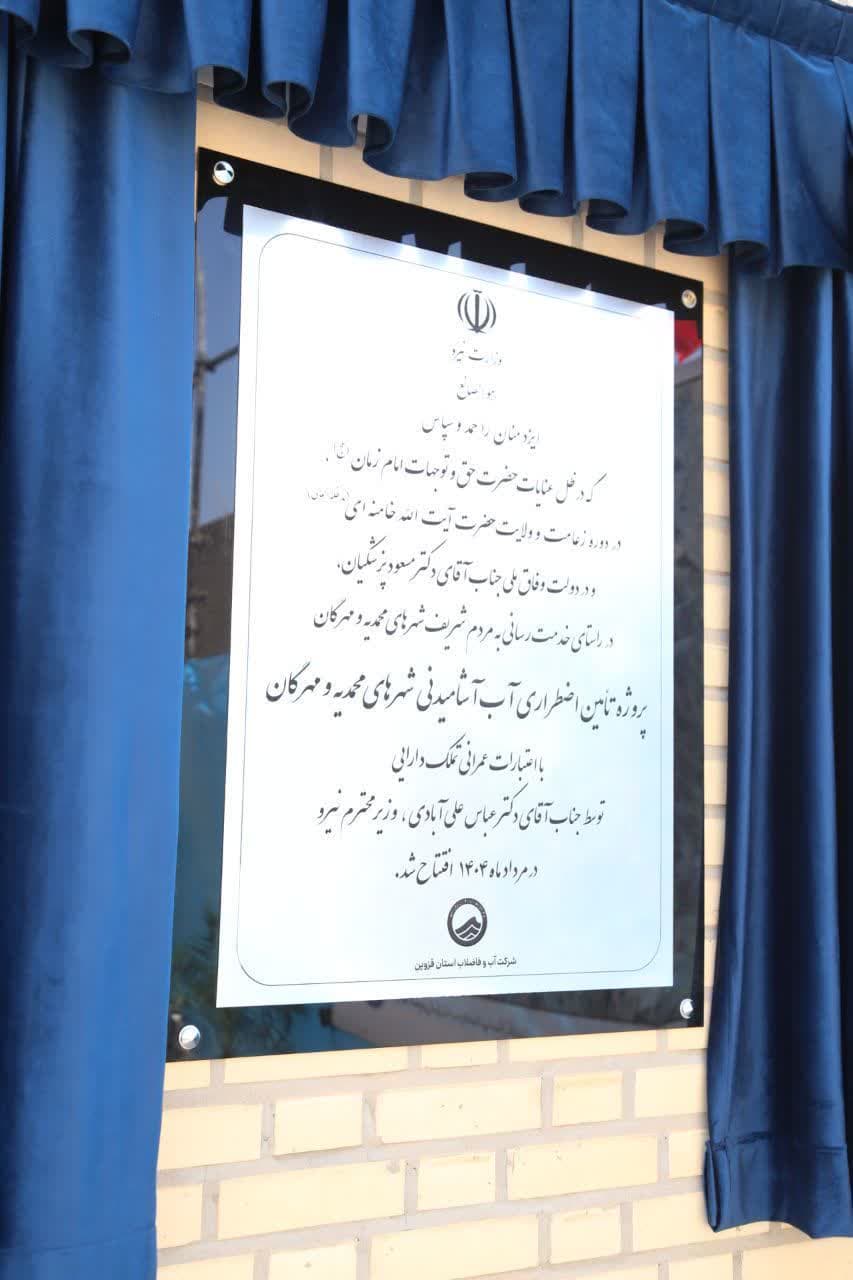 وزارت نیرو
هوالصانع
ایزد منان را حمد و سپاس
که در ظل عنایات حضرت حق و توجهات امام زمان (عج)،
در دوره زعامت و ولایت حضرت آیت الله خامنه ای (مدظله العالی)
و در دولت وفاق ملی جناب آقای دکتر مسعود پزشکیان،
در راستای خدمت رسانی به مردم شریف شهرهای محمدیه و مهرگان
پروژه تأمین اضطراری آب آشامیدنی شهرهای محمدیه و مهرگان
با اعتبارات عمرانی تملک دارایی
توسط جناب آقای دکتر عباس علی آبادی، وزیر محترم نیرو
در مرداد ماه ۱۴۰۴ افتتاح شد.
شرکت آب و فاضلاب استان قزوین